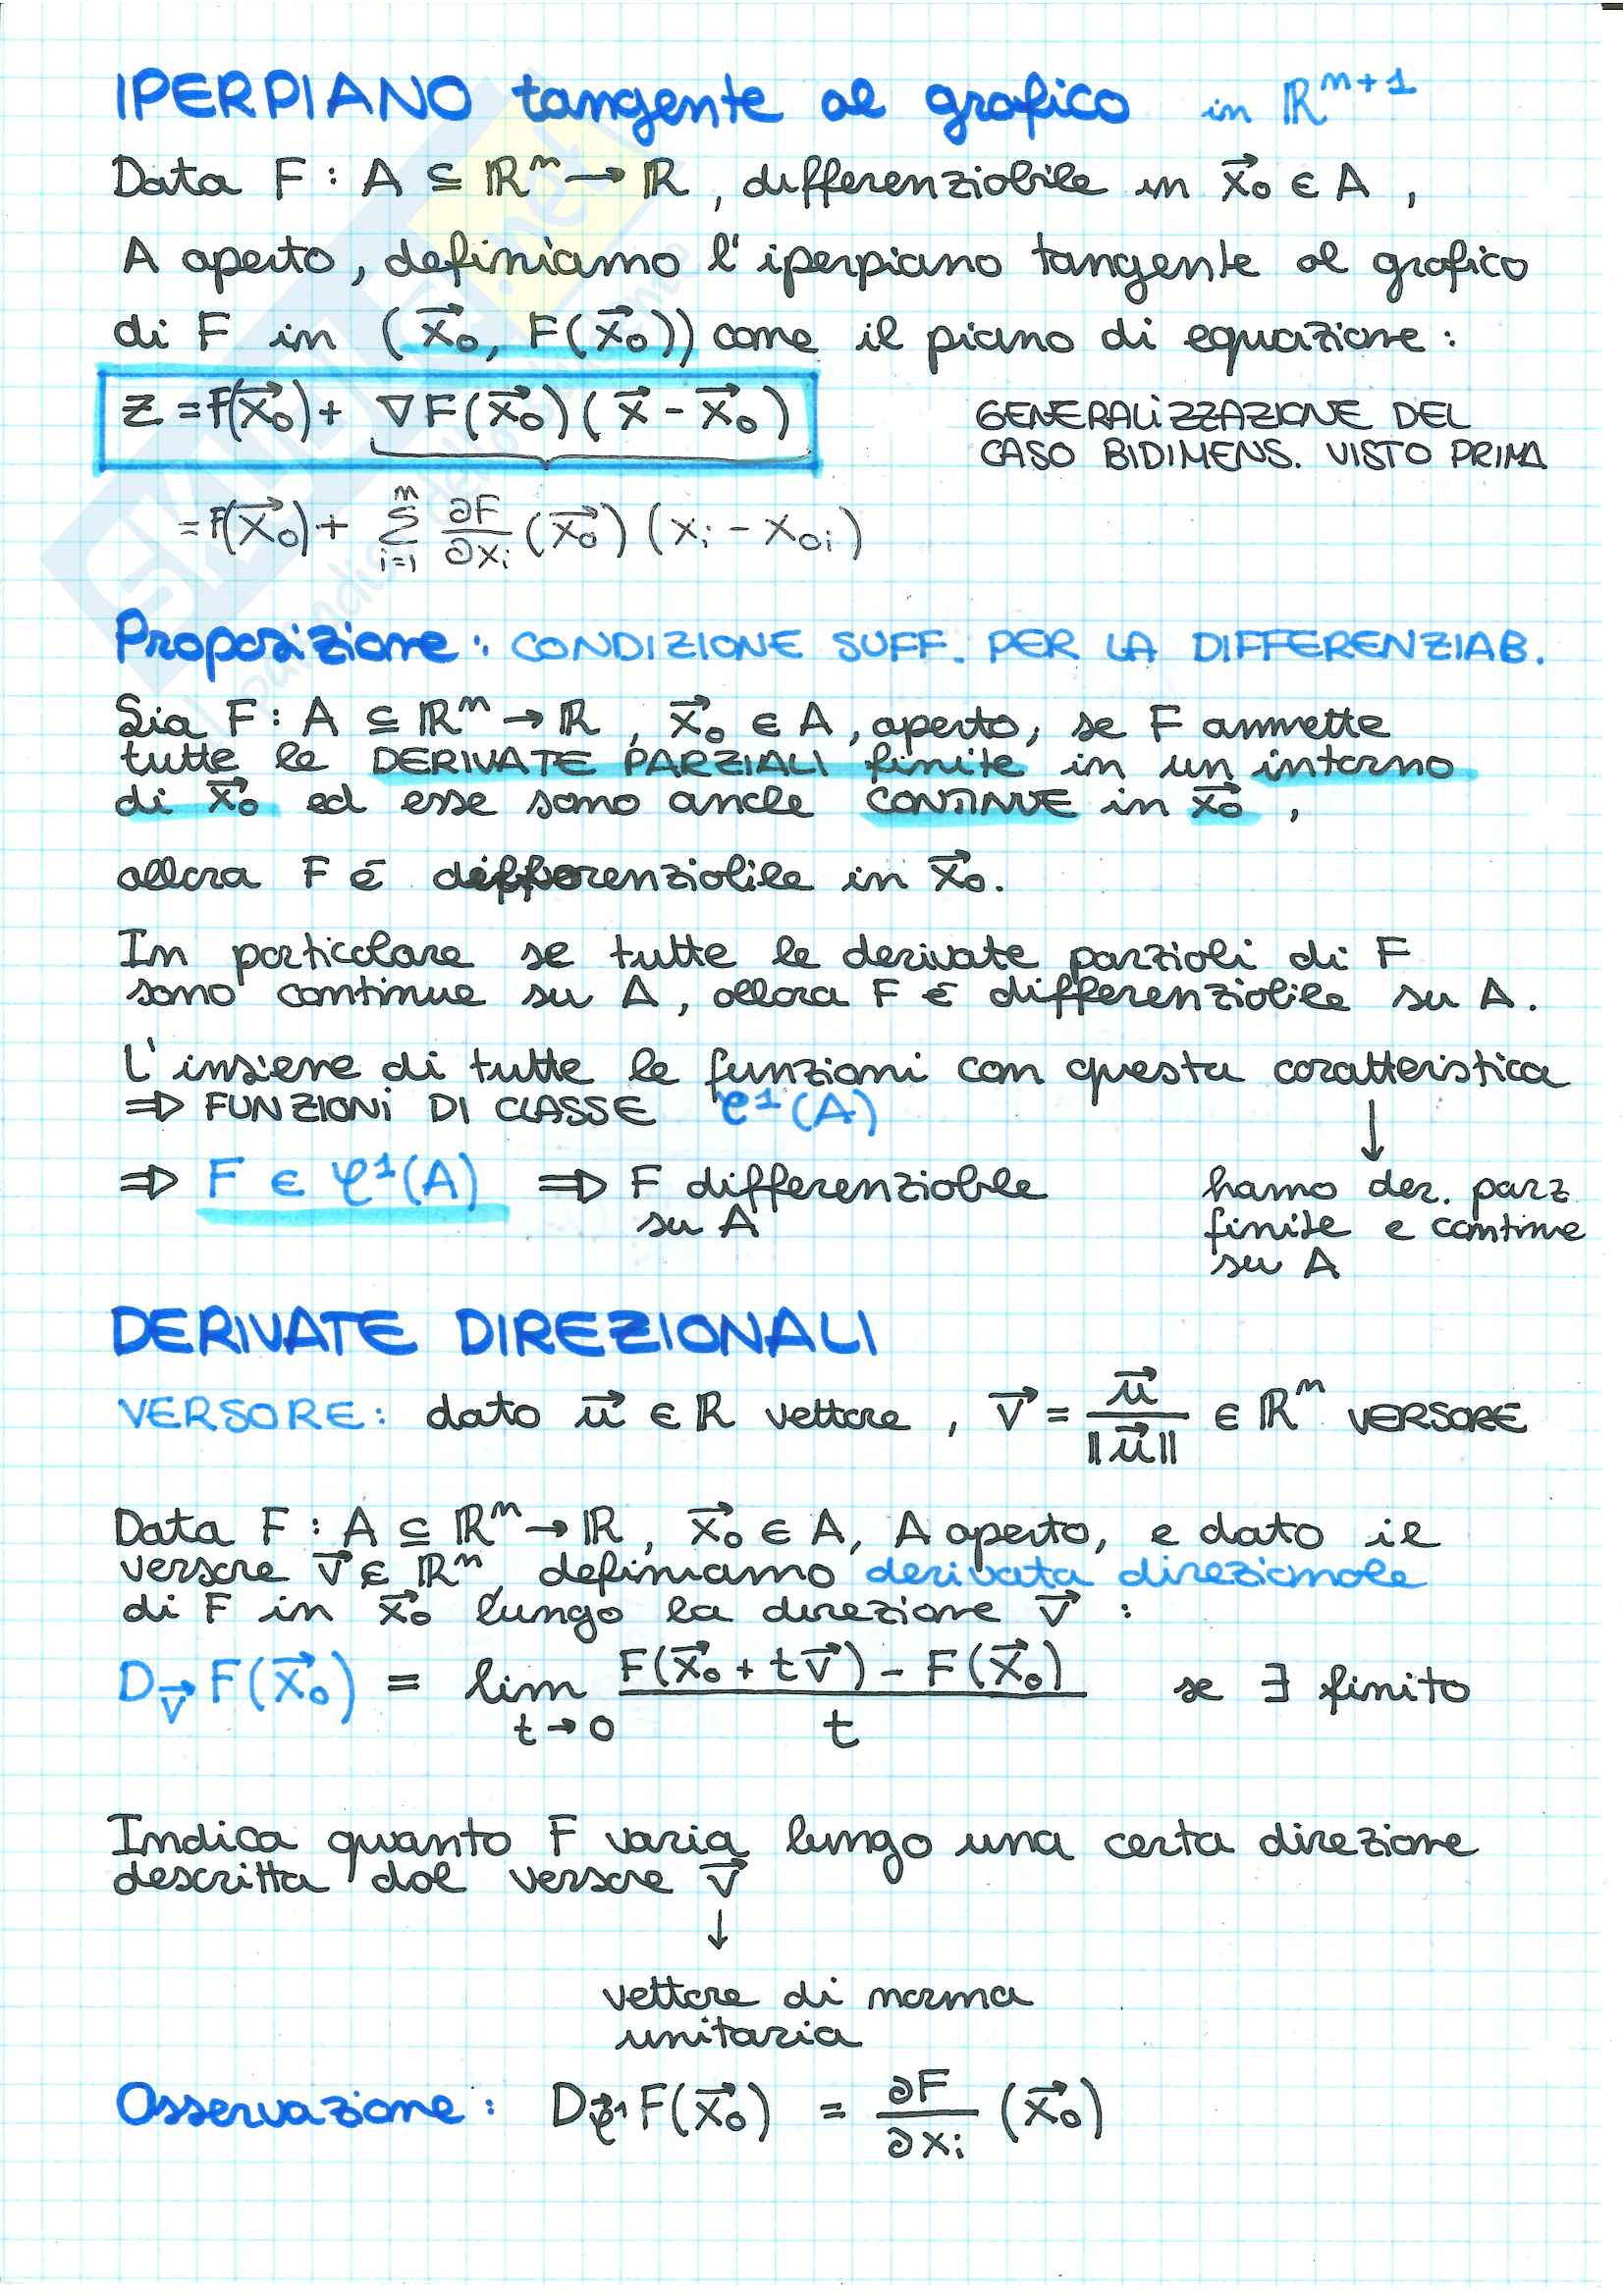 IPERPIANO tangente al grafico in ℝⁿ⁺¹
Data F : A ⊆ ℝⁿ → ℝ , differenziabile in x⃗₀ ∈ A ,
A aperto, definiamo l'iperpiano tangente al grafico
di F in (x⃗₀, F(x⃗₀)) come il piano di equazione :
z = F(x⃗₀) + ∇F(x⃗₀)(x⃗ - x⃗₀)
GENERALIZZAZIONE DEL
CASO BIDIMENS. VISTO PRIMA
= F(x⃗₀) + Σᵢ₌₁ⁿ ∂F/∂xᵢ (x⃗₀) (xᵢ - x₀ᵢ)
Proposizione : CONDIZIONE SUFF. PER LA DIFFERENZIAB.
Sia F : A ⊆ ℝⁿ → ℝ , x⃗₀ ∈ A , aperto, se F ammette
tutte le DERIVATE PARZIALI finite in un intorno
di x⃗₀ ed esse sono anche CONTINUE in x⃗₀ ,
allora F é differenziabile in x⃗₀.
In particolare se tutte le derivate parziali di F
sono continue su A , allora F é differenziabile su A.
L'insieme di tutte le funzioni con questa caratteristica
⇒ FUNZIONI DI CLASSE C¹(A)
↓
⇒ F ∈ C¹(A) ⇒ F differenziabile
su A
hanno der. parz
finite e continue
su A
DERIVATE DIREZIONALI
VERSORE : dato u⃗ ∈ ℝ vettore , v⃗ = u⃗/‖u⃗‖ ∈ ℝⁿ VERSORE
Data F : A ⊆ ℝⁿ → ℝ , x⃗₀ ∈ A, A aperto, e dato il
versore v⃗ ∈ ℝⁿ, definiamo derivata direzionale
di F in x⃗₀ lungo la direzione v⃗ :
D_v⃗ F(x⃗₀) = lim_{t→0} (F(x⃗₀ + tv⃗) - F(x⃗₀))/t se ∃ finito
Indica quanto F varia lungo una certa direzione
descritta dal versore v⃗
↓
vettore di norma
unitaria
Osservazione : D F(x⃗₀) = ∂F/∂xᵢ (x⃗₀)